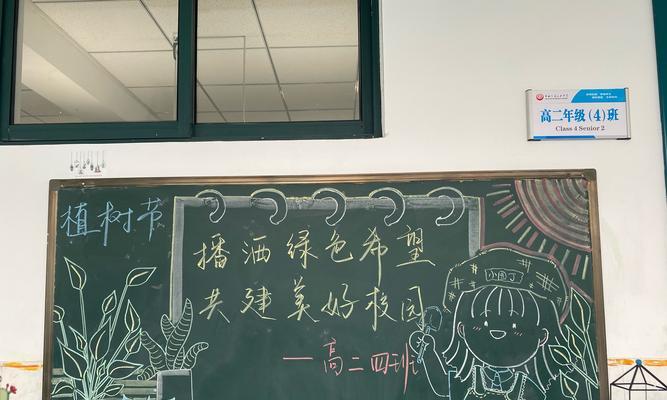 高二年级（4）班
Class 4 Senior 2
植树节
播洒绿色希望
共建美好校园
小园丁
—高二四班